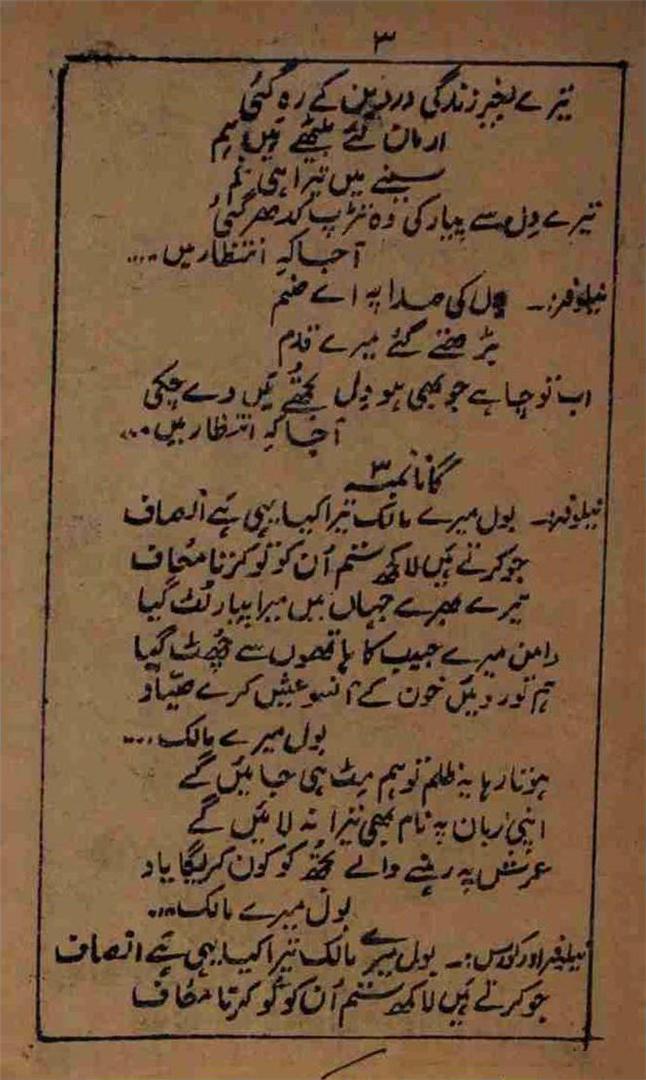 ۳
تیرے بغیر زندگی درد بن کے رہ گئی
ارمان لئے بیٹھے ہیں ہم
سینے میں تیرا ہی غم
تیرے دل سے پیار کی وہ تڑپ کدھر گئی
آجا کہ انتظار میں ....
نیلوفر:۔ دل کی صدا پہ اے صنم
بڑھتے گئے میرے قدم
اب تو چاہے جو بھی ہو دل تجھے میں دے چکی
آجا کہ انتظار میں ...
گانا نمبر ۳
نیلوفر:۔ بول میرے مالک تیرا کیا یہی ہے انصاف
جو کرتے ہیں لاکھ ستم اُن کو تو کرتا معاف
تیرے بھرے جہاں میں میرا پیار لُٹ گیا
دامن میرے حبیب کا ہاتھوں سے چُھٹ گیا
ہم تو روئیں خون کے آنسو عیش کرے صیّاد
بول میرے مالک ....
ہوتا رہا یہ ظلم تو ہم مِٹ ہی جائیں گے
اپنی زبان پہ نام بھی تیرا نہ لائیں گے
عرش پہ رہنے والے تجھ کو کون کریگا یاد
بول میرے مالک ....
نیلوفر اور کورس:۔ بول میرے مالک تیرا کیا یہی ہے انصاف
جو کرتے ہیں لاکھ ستم اُن کو تو کرتا معاف